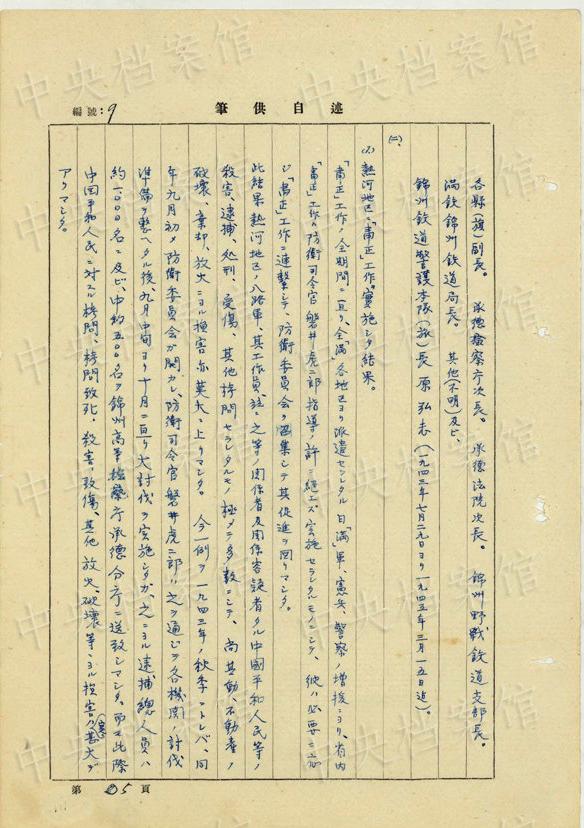 編號:9
筆供自述
各縣(旗)副長。 承德檢察庁次長。 承德法院次長。 錦州野戦鉄道支部長。
満鉄錦州鉄道局長。 其他(不明)及ビ、
錦州鉄道警護本隊(旅)長 原弘志(一九四三年七月二九日ヨリ一九四五年三月一五日迄)。
(二)
(イ)熱河地区ニ「粛正」工作ヲ実施シタ結果。
「粛正」工作ノ全期間ニ亘リ、全「満」各地区ヨリ派遣セラレタル日「満」軍、憲兵、警察ノ増援ニヨリ、省内
「粛正」工作ハ防衛司令官磐井虎二郎指導ノ許ニ絶エズ実施セラレタルモノニシテ、彼ハ必要ニ応
ジ「粛正」工作ニ連繋シテ、防衛委員会ヲ召集シテ其促進ヲ図リマシタ。
此結果熱河地区ノ八路軍、其工作員 並ニ之等ノ関係者及関係容疑者タル中国平和人民等ノ
殺害、逮捕、処刑、受傷、其他拷問セラレタルモノ極メテ多数ニシテ、尚其動、不動産ノ
破壊、棄却、放火ニヨル損害亦莫大ニ上リマシタ。 今一例ヲ一九四三年ノ秋季ニトレバ、同
年九月初メ防衛委員会ガ開カレ、防衛司令官磐井虎二郎ハ之ヲ通ジテ各機関ノ討伐
準備ヲ整ヘタル後、九月中旬ヨリ十月ニ亘リ大討伐ヲ実施シタガ、之ニヨル逮捕總人員ハ
約一000名ニ及ビ、中約五00名ヲ錦州高等檢察庁承德分庁ニ送致シマシタ。而シ此際
中国平和人民ニ対スル拷問、拷問致死、殺害、致傷、其他 放火、破壊等ニヨル損害(害)ハ甚大デ
アリマシタ。
第 5 頁
中央档案馆